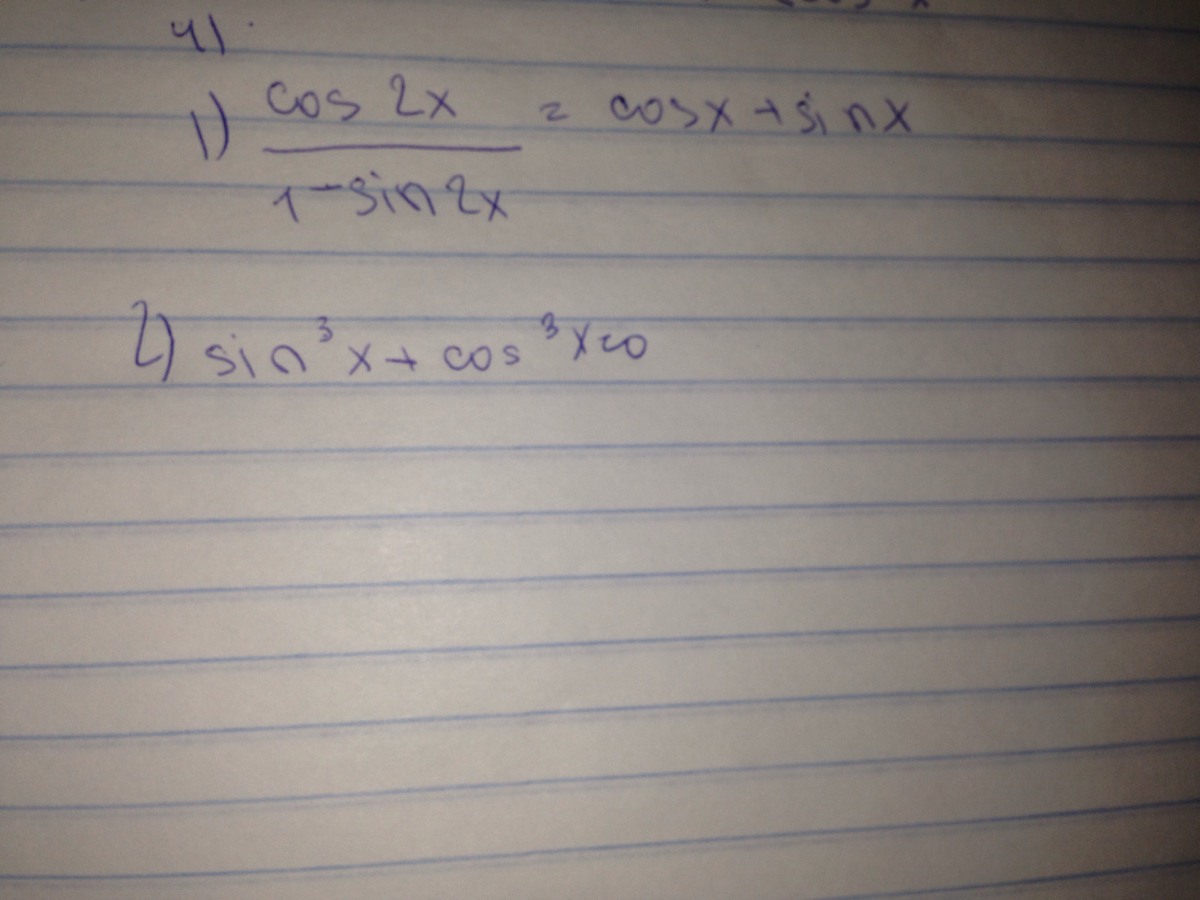 4)
1) cos 2x / 1 - sin 2x = cos x + sin x
2) sin³ x + cos³ x = 0